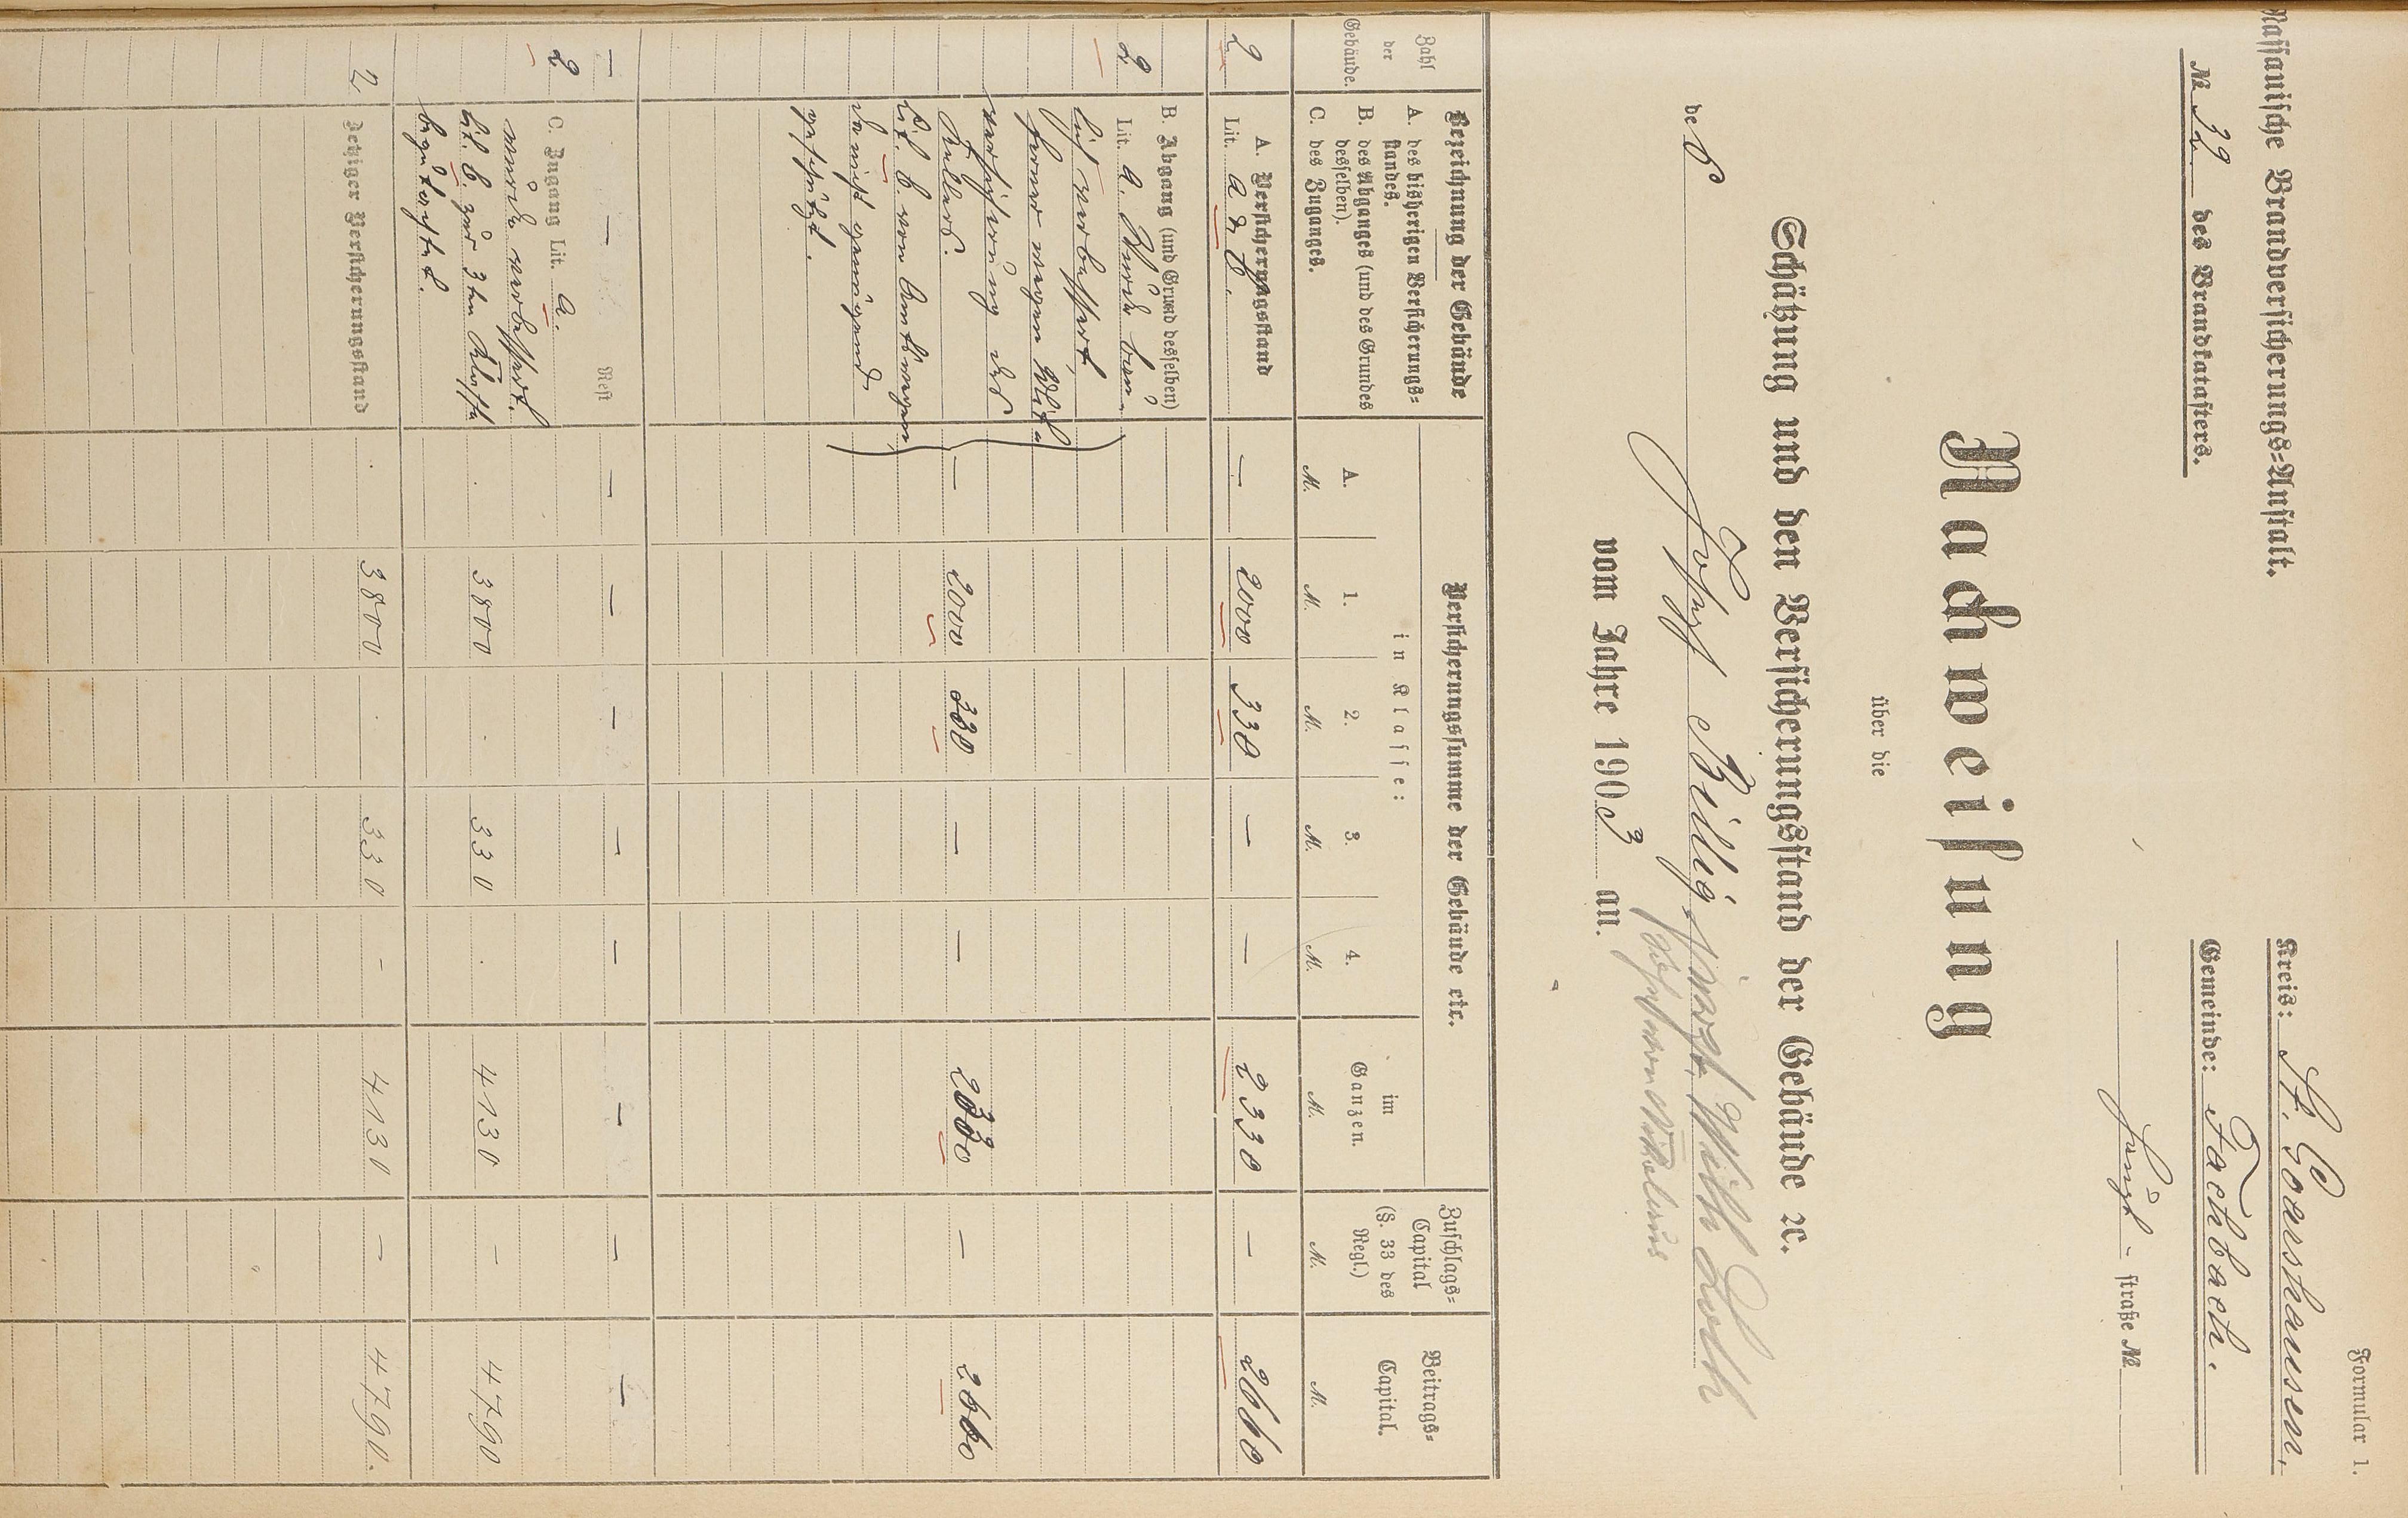 Formular 1.
Nassauische Brandversicherungs=Anstalt.
Kreis: St. Goarshausen,
№ 32 des Brandkatasters.
Gemeinde: Fachbach.
straße №
Nachweisung
über die
Schätzung und den Versicherungsstand der Gebäude ꝛc.
des Josef Billig
vom Jahre 1903 an.
Zahl der Gebäude.
Bezeichnung der Gebäude
A. des bisherigen Versicherungs=
standes.
B. des Abganges (und des Grundes
desselben).
C. des Zuganges.
Versicherungssumme der Gebäude etc.
in Klasse:
A. 1. 2. 3. 4.
im
Ganzen.
Zuschlags=
Capital
(§. 33 des
Regl.)
Beitrags=
Capital.
M. M. M. M. M. M. M. M.
A. Versicherungsstand
2 Lit. a & b. — 2000 330 — — 2330 — 2660
B. Abgang (und Grund desselben)
2 Lit. a wurde
verbessert,
ferner wegen
des
Kellers.
Lit. b von
— 2000 330 — — 2330 — 2660
— — Rest — — — — — — — —
C. Zugang Lit. a.
2. wurde verbessert.
Lit. b. zur 3ten Klasse
3800 330 4130 — 4790
2 Jetziger Versicherungsstand 3800 330 - 4130 — 4790.